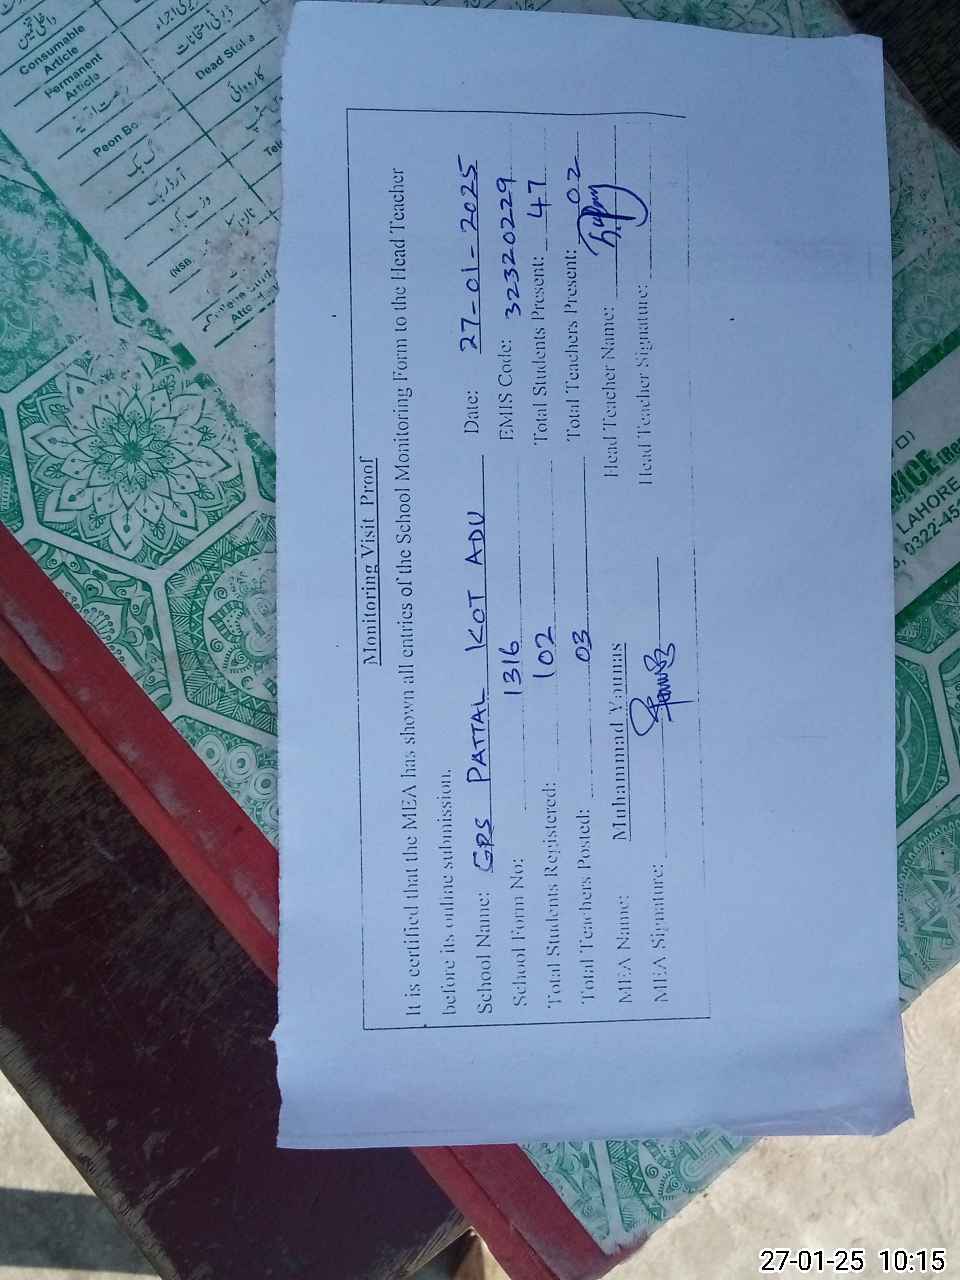 Monitoring Visit Proof
It is certified that the MEA has shown all entries of the School Monitoring Form to the Head Teacher
before its online submission.
School Name: GPS PATTAL KOT ADU Date: 27-01-2025
School Form No: 1316 EMIS Code: 32320229
Total Students Registered: 102 Total Students Present: 47
Total Teachers Posted: 03 Total Teachers Present: 02
MEA Name: Muhammad Younas Head Teacher Name:
MEA Signature: Head Teacher Signature:
Consumable
Article
Permanent
Article
Dead Stock
Peon Bo
Tele
(NSB
آرڈر بک
کارروائی
LAHORE
0322-45
27-01-25 10:15